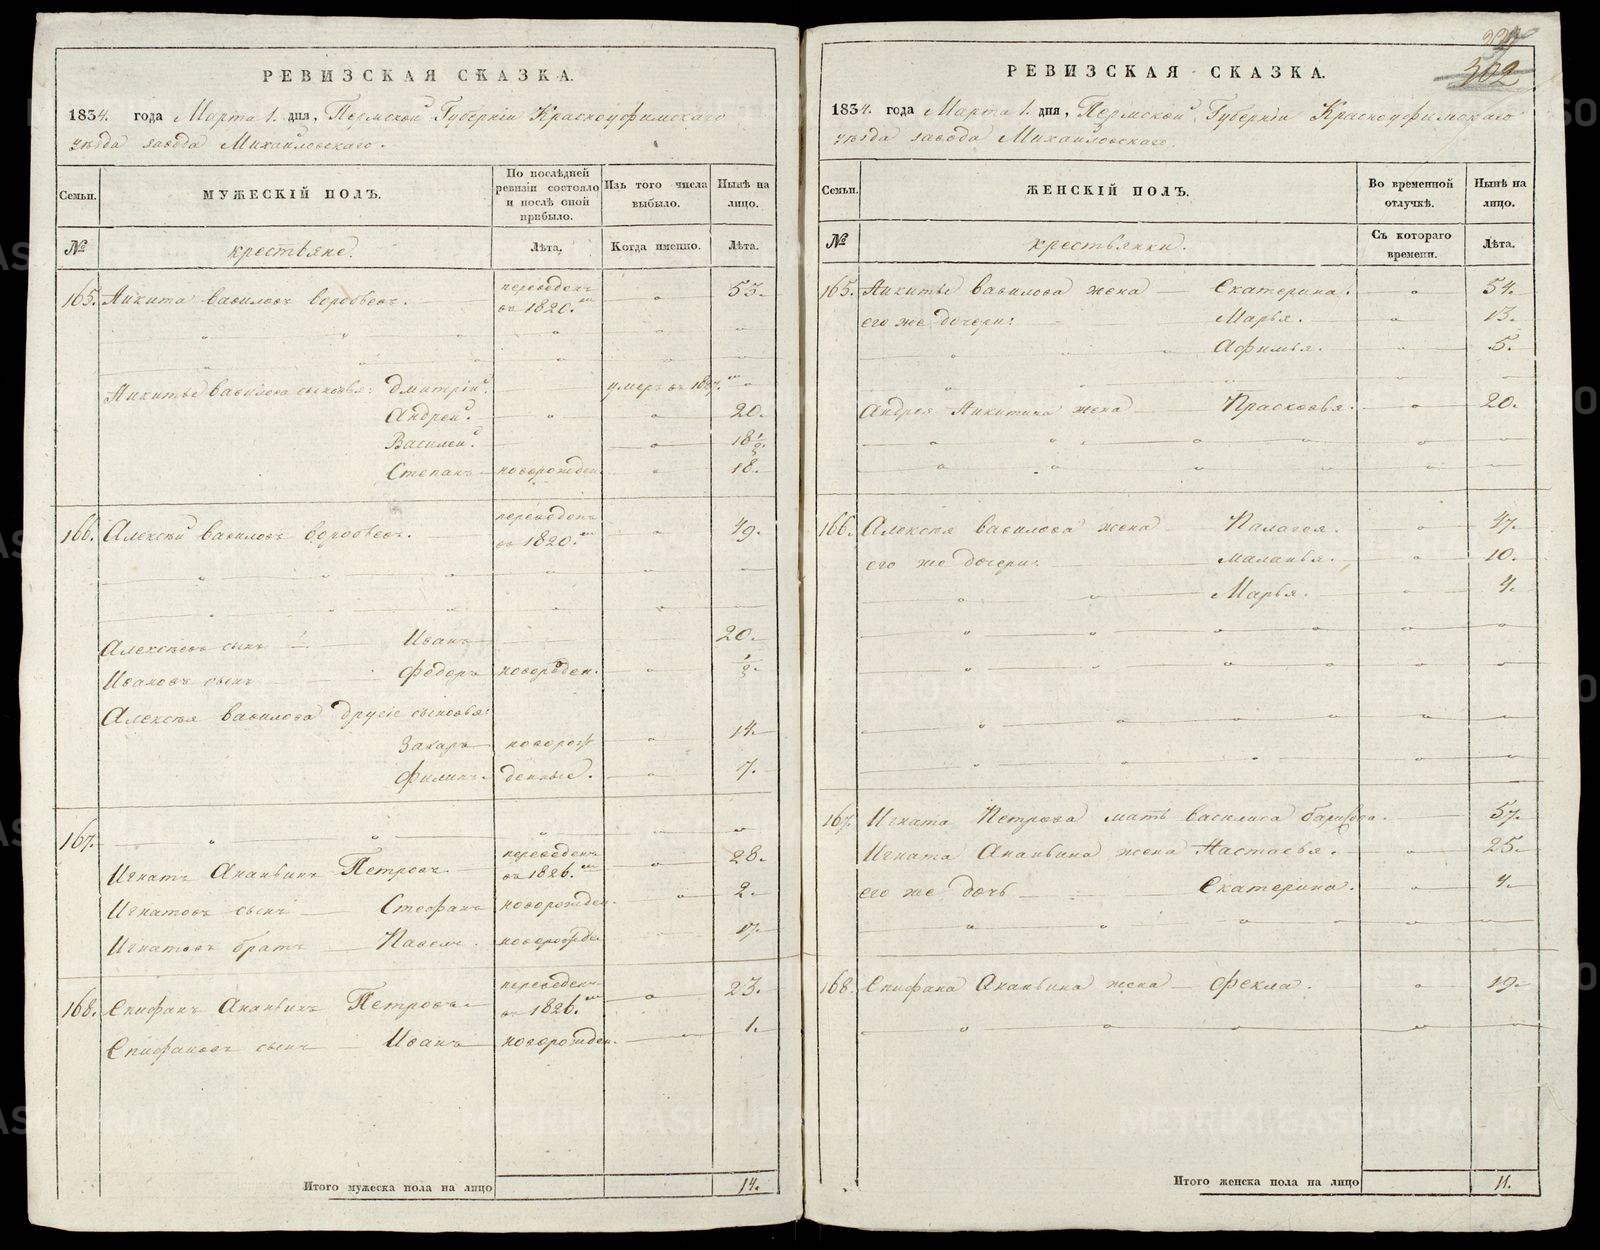 РЕВИЗСКАЯ СКАЗКА.
1834. года Марта 1. дня, Пермской Губерніи Красноуфимскаго
уѣзда завода Михайловскаго.
Семьи.
МУЖЕСКІЙ ПОЛЪ.
По послѣдней ревизіи состояло и послѣ оной прибыло.
Изъ того числа выбыло.
Нынѣ на лицо.
№
крестьяне.
Лѣта.
Когда именно.
Лѣта.
165. Никита Вавиловъ Воробьевъ. переведенъ въ 1820.мъ 53.
Никиты Вавилова сыновья: Дмитрій. умеръ въ 1827.мъ
Андрей. 20.
Василей. 18 1/2.
Степанъ новорожден. 18.
166. Алексѣй Вавиловъ Воробьевъ. переведенъ въ 1820.мъ 49.
Алексѣевъ сынъ Иванъ 20.
Ивановъ сынъ Федоръ новорожден. 1/2.
Алексѣя Вавилова другіе сыновья:
Захаръ новорож 14.
Филипъ денные. 7.
167.
Игнатъ Ананьинъ Петровъ. переведенъ въ 1826.мъ 28.
Игнатовъ сынъ Стефанъ новорожден. 2.
Игнатовъ братъ Павелъ. новорожде 17.
168. Епифанъ Ананьинъ Петровъ переведенъ въ 1826.мъ 23.
Епифановъ сынъ Иванъ новорожден. 1.
Итого мужеска пола на лицо 14.
302
РЕВИЗСКАЯ СКАЗКА.
1834. года Марта 1. дня, Пермской Губерніи Красноуфимскаго
уѣзда завода Михайловскаго.
Семьи.
ЖЕНСКІЙ ПОЛЪ.
Во временной отлучкѣ.
Нынѣ на лицо.
№
крестьянки.
Съ котораго времени.
Лѣта.
165. Никиты Вавилова жена Екатерина. 54.
его же дочери: Марья. 13.
Афимья. 5.
Андрея Никитина жена Прасковья. 20.
166. Алексѣя Вавилова жена Палагея. 47.
его же дочери: Маланья. 10.
Марья. 4.
167. Игната Петрова мать Василиса Борисова. 57.
Игната Ананьина жена Настасья. 25.
его же дочь Екатерина. 4.
168. Епифана Ананьина жена Фекла. 19.
Итого женска пола на лицо 11.
METRIKI.GASO-URAL.RU